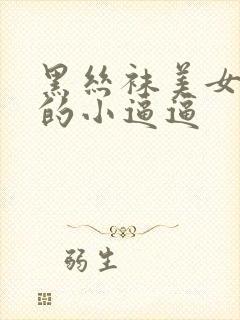 黑丝袜美女
的小逼逼
弱生